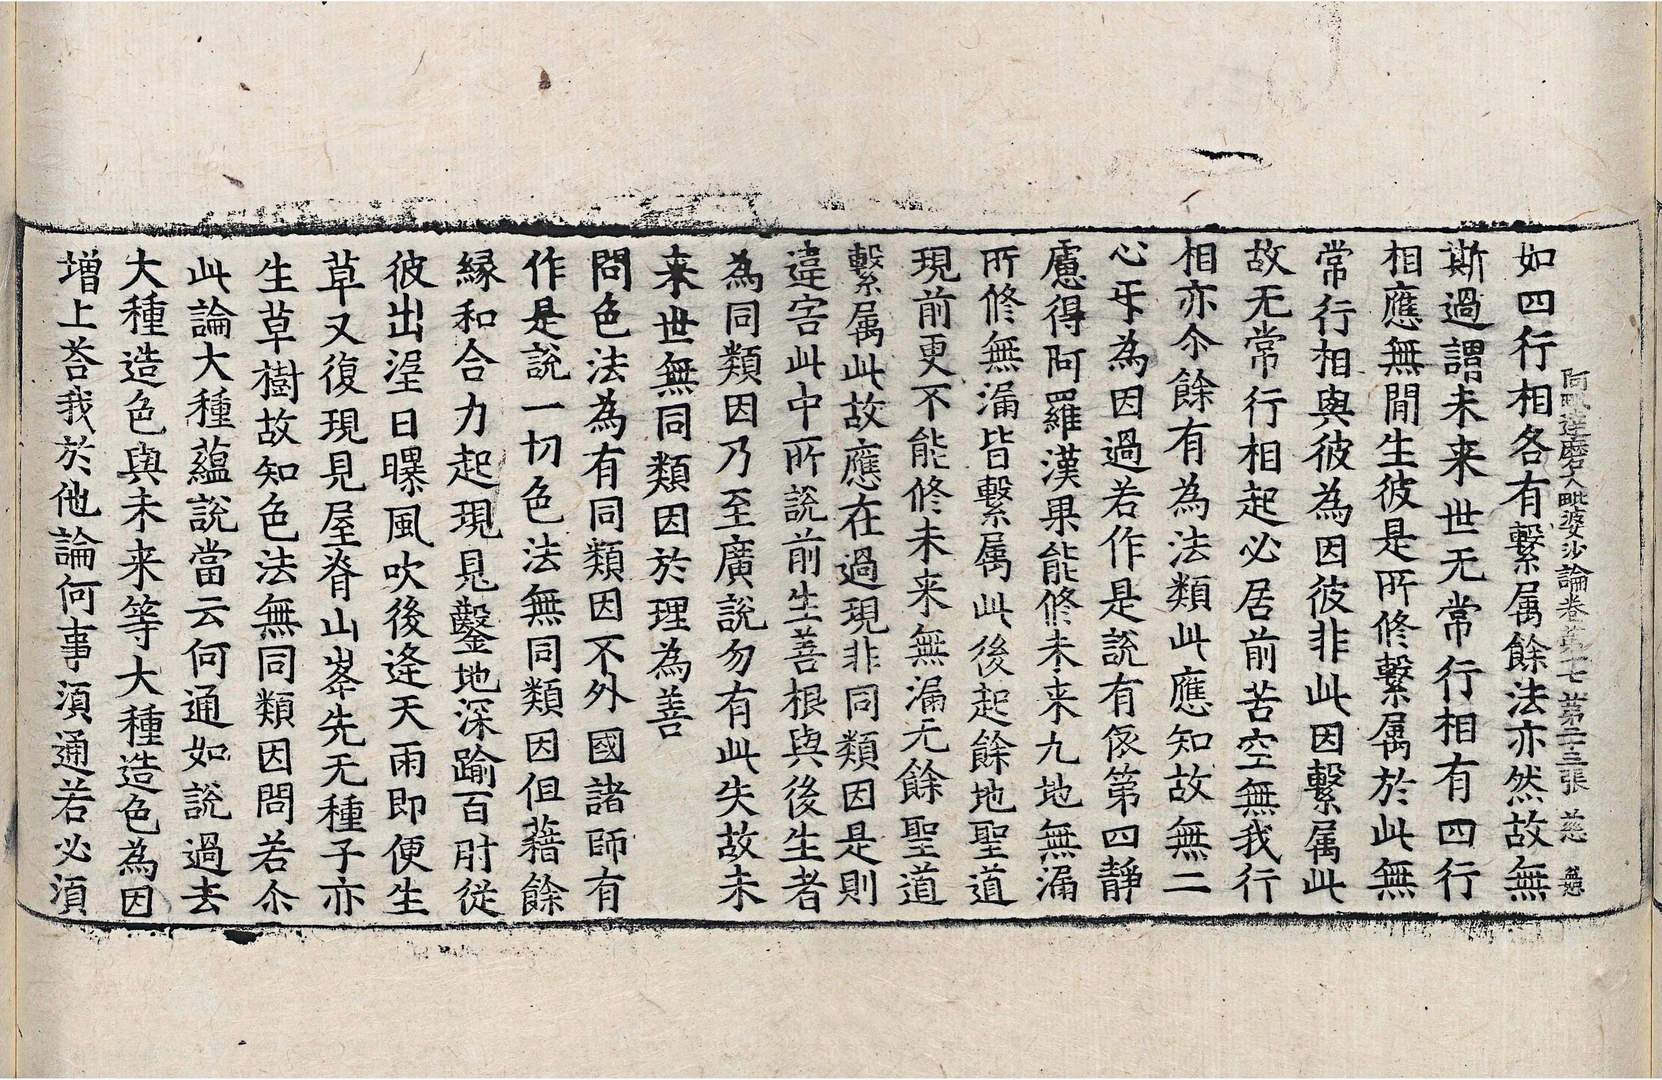 阿毗達磨大毗婆沙論卷第十七 第二十三張 慈
如四行相各有繫属餘法亦然故無
斯過謂未来世无常行相有四行
相應無閒生彼是所修繫属於此無
常行相與彼為因彼非此因繫属此
故无常行相起必居前苦空無我行
相亦尒餘有為法類此應知故無二
心㸦為因過若作是說有依第四靜
慮得阿羅漢果能修未来九地無漏
所修無漏皆繫属此後起餘地聖道
現前更不能修未来無漏无餘聖道
繫属此故應在過現非同類因是則
違害此中所說前生善根與後生者
為同類因乃至廣說勿有此失故未
来世無同類因於理為善
問色法為有同類因不外國諸師有
作是說一切色法無同類因但藉餘
緣和合力起現見鑿地深踰百肘從
彼出埿日曝風吹後逢天雨即便生
草又復現見屋脊山峯先无種子亦
生草樹故知色法無同類因問若尒
此論大種蘊說當云何通如說過去
大種造色與未来等大種造色為因
增上荅我於他論何事湏通若必湏